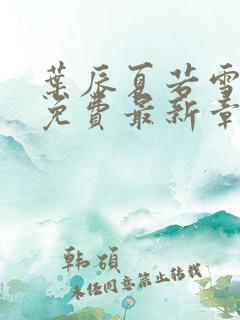 葉辰夏若雪
免費最新章
韩硕
未经同意禁止转载